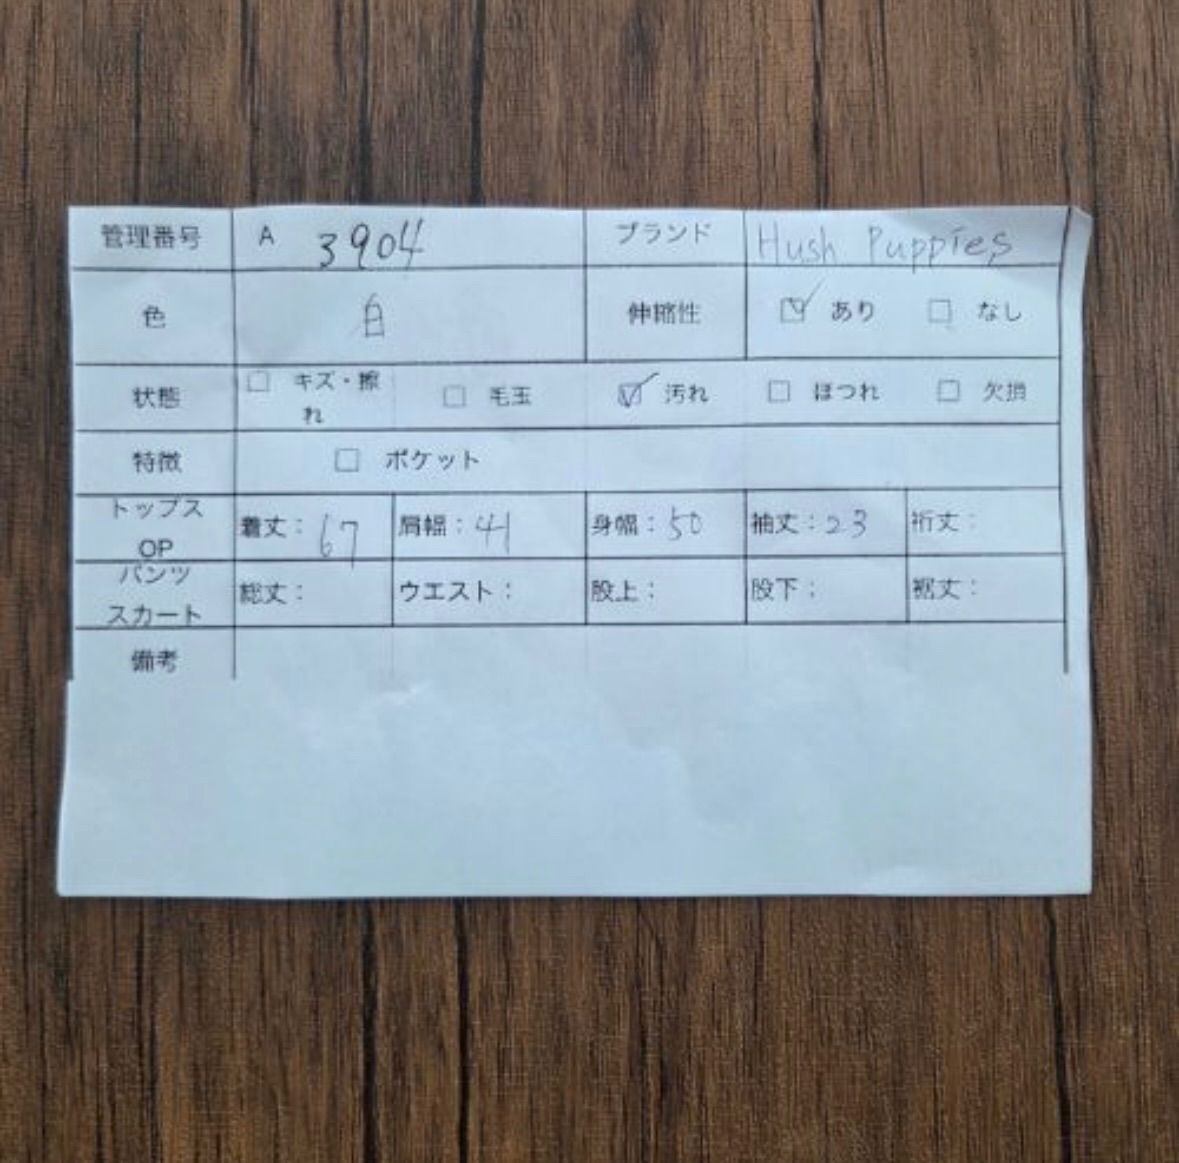 管理番号 A 3904 ブランド Hush Puppies
色 白 伸縮性 ☑ あり ☐ なし
状態 ☐ キズ・擦れ ☐ 毛玉 ☑ 汚れ ☐ ほつれ ☐ 欠損
特徴 ☐ ポケット
トップス
OP
着丈：67 肩幅：41 身幅：50 袖丈：23 裄丈：
パンツ
スカート
総丈： ウエスト： 股上： 股下： 裾丈：
備考